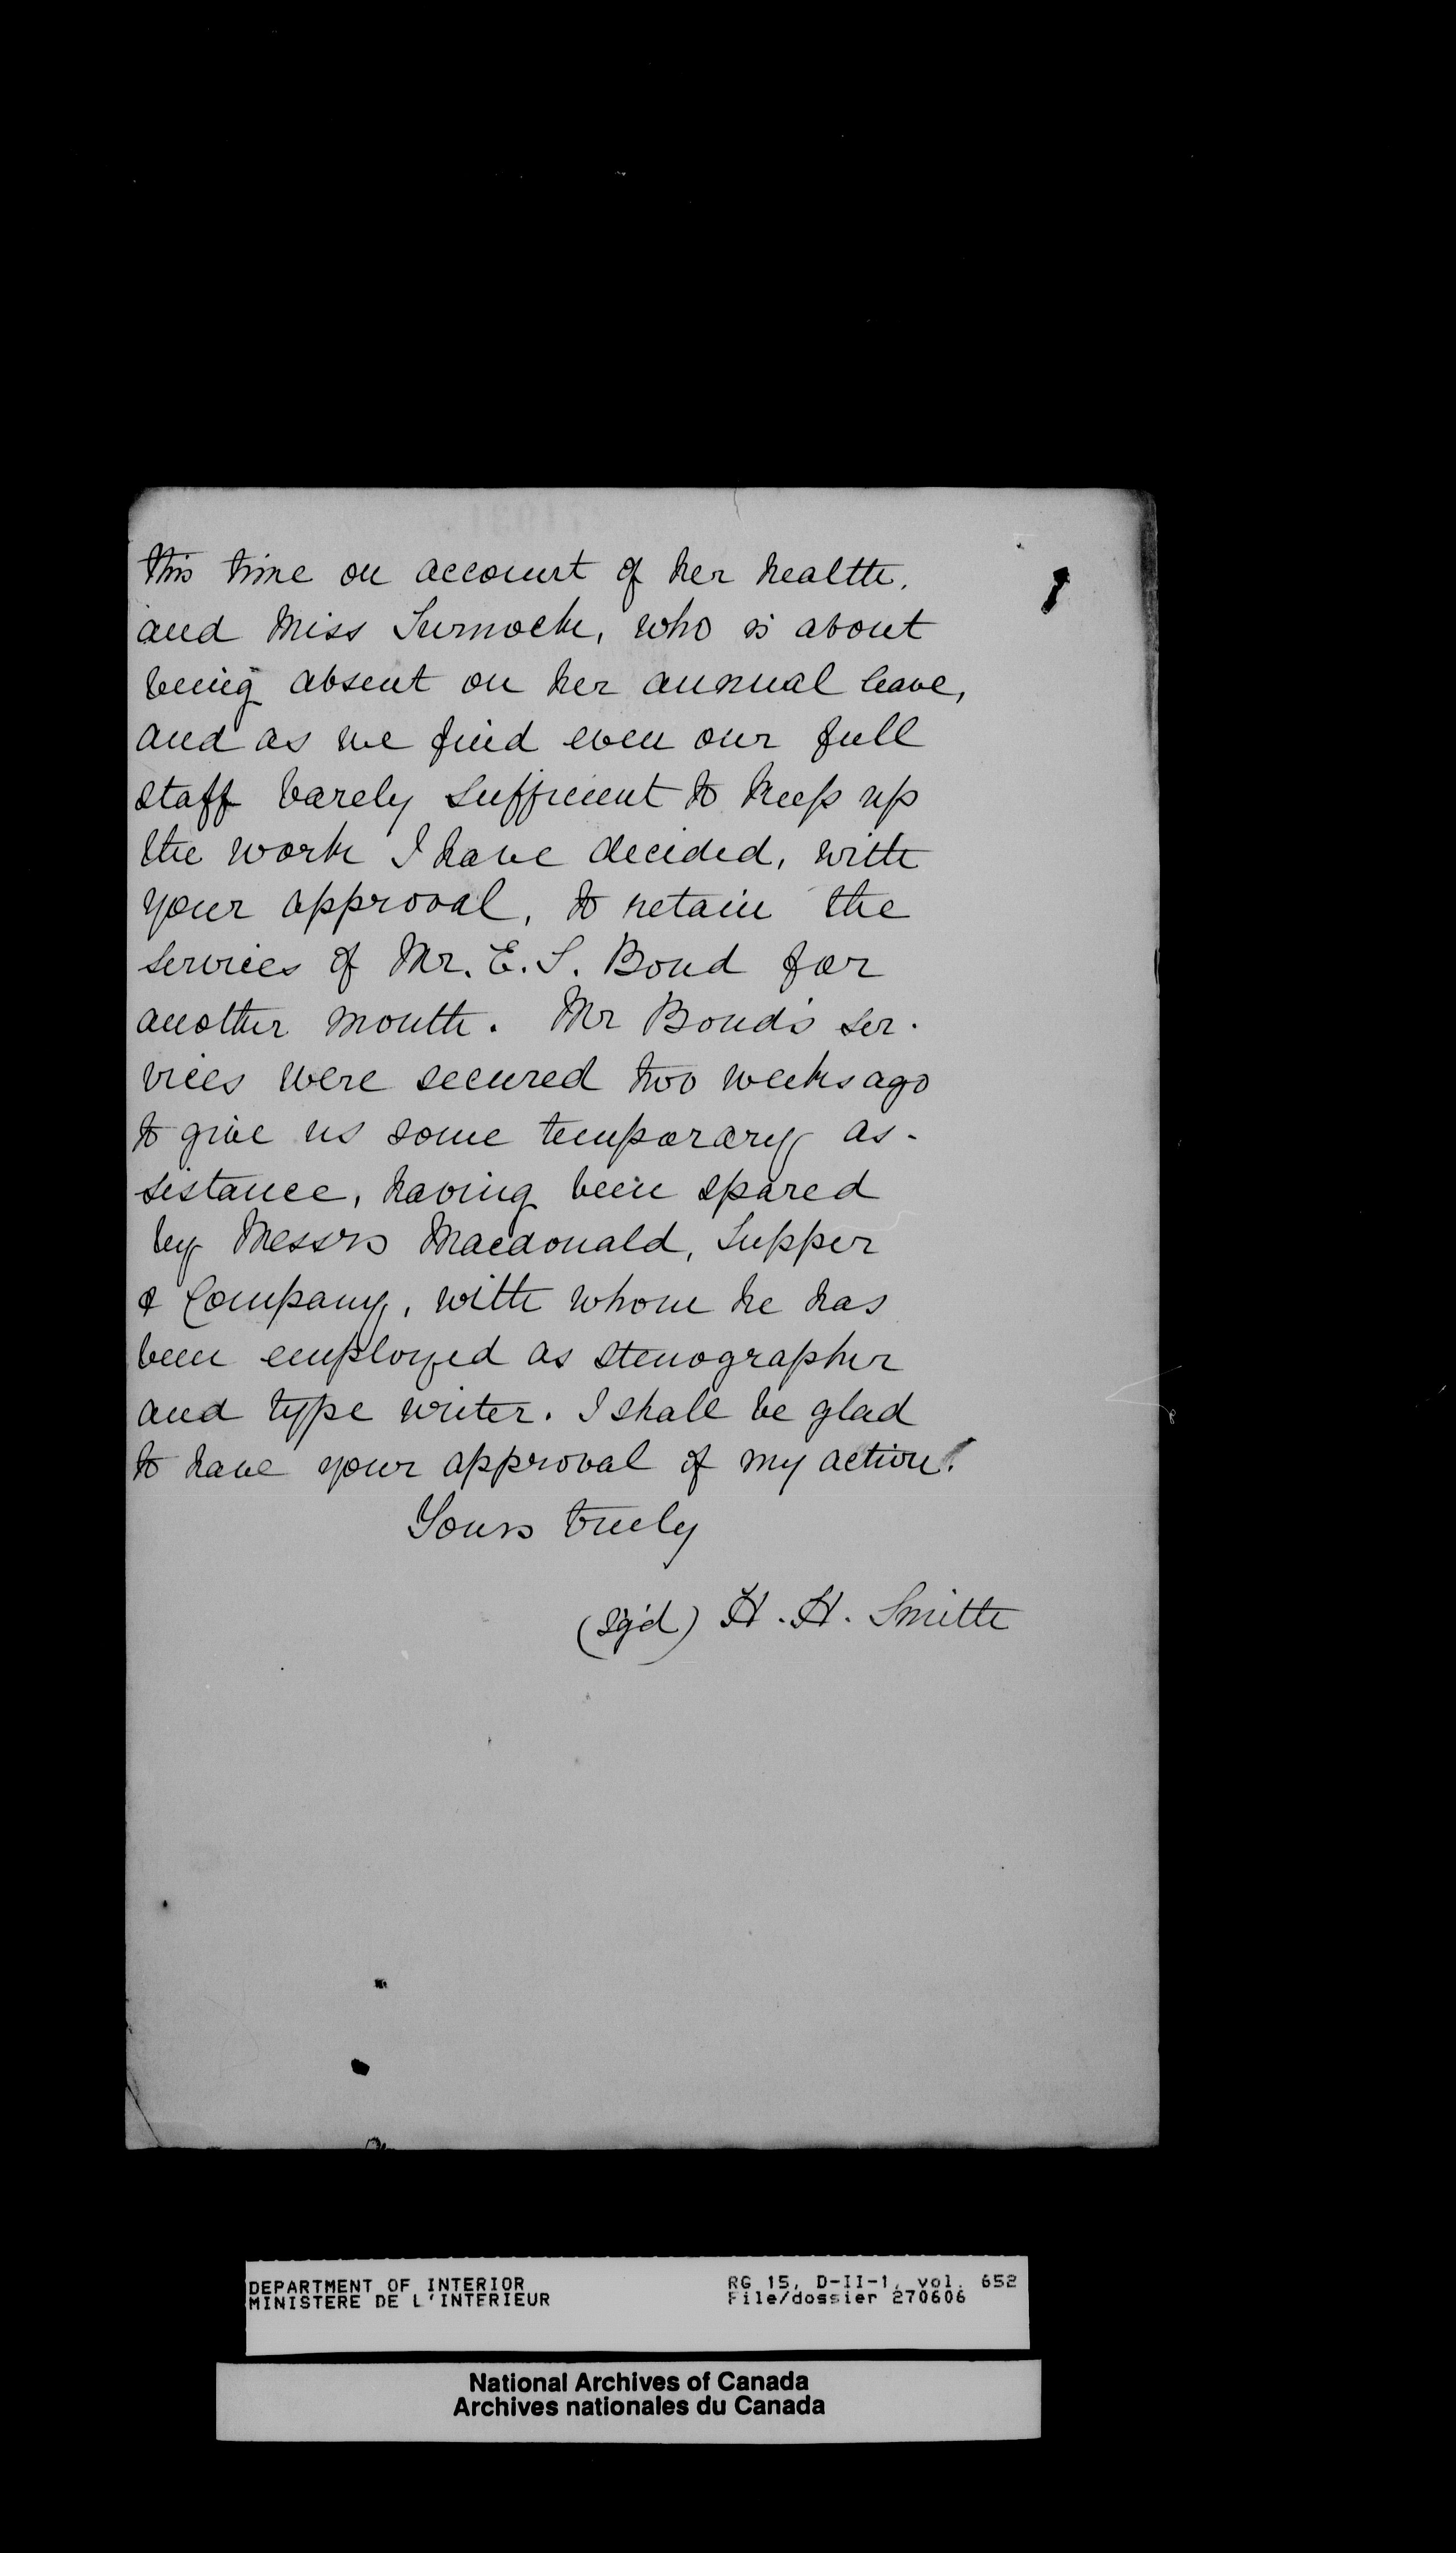 this time on account of her health,
and Miss Turnock, who is about
being absent on her annual leave,
and as we find even our full
staff barely sufficient to keep up
the work I have decided, with
your approval, to retain the
services of Mr. E. S. Bond for
another month. Mr Bond's ser-
vices were secured two weeks ago
to give us some temporary as-
sistance, having been spared
by Messrs Macdonald, Tupper
& Company, with whom he has
been employed as stenographer
and type writer. I shall be glad
to have your approval of my action.
Yours truly
(sg'd) H. H. Smith
DEPARTMENT OF INTERIOR
MINISTERE DE L'INTERIEUR
RG 15, D-II-1, vol. 652
File/dossier 270606
National Archives of Canada
Archives nationales du Canada